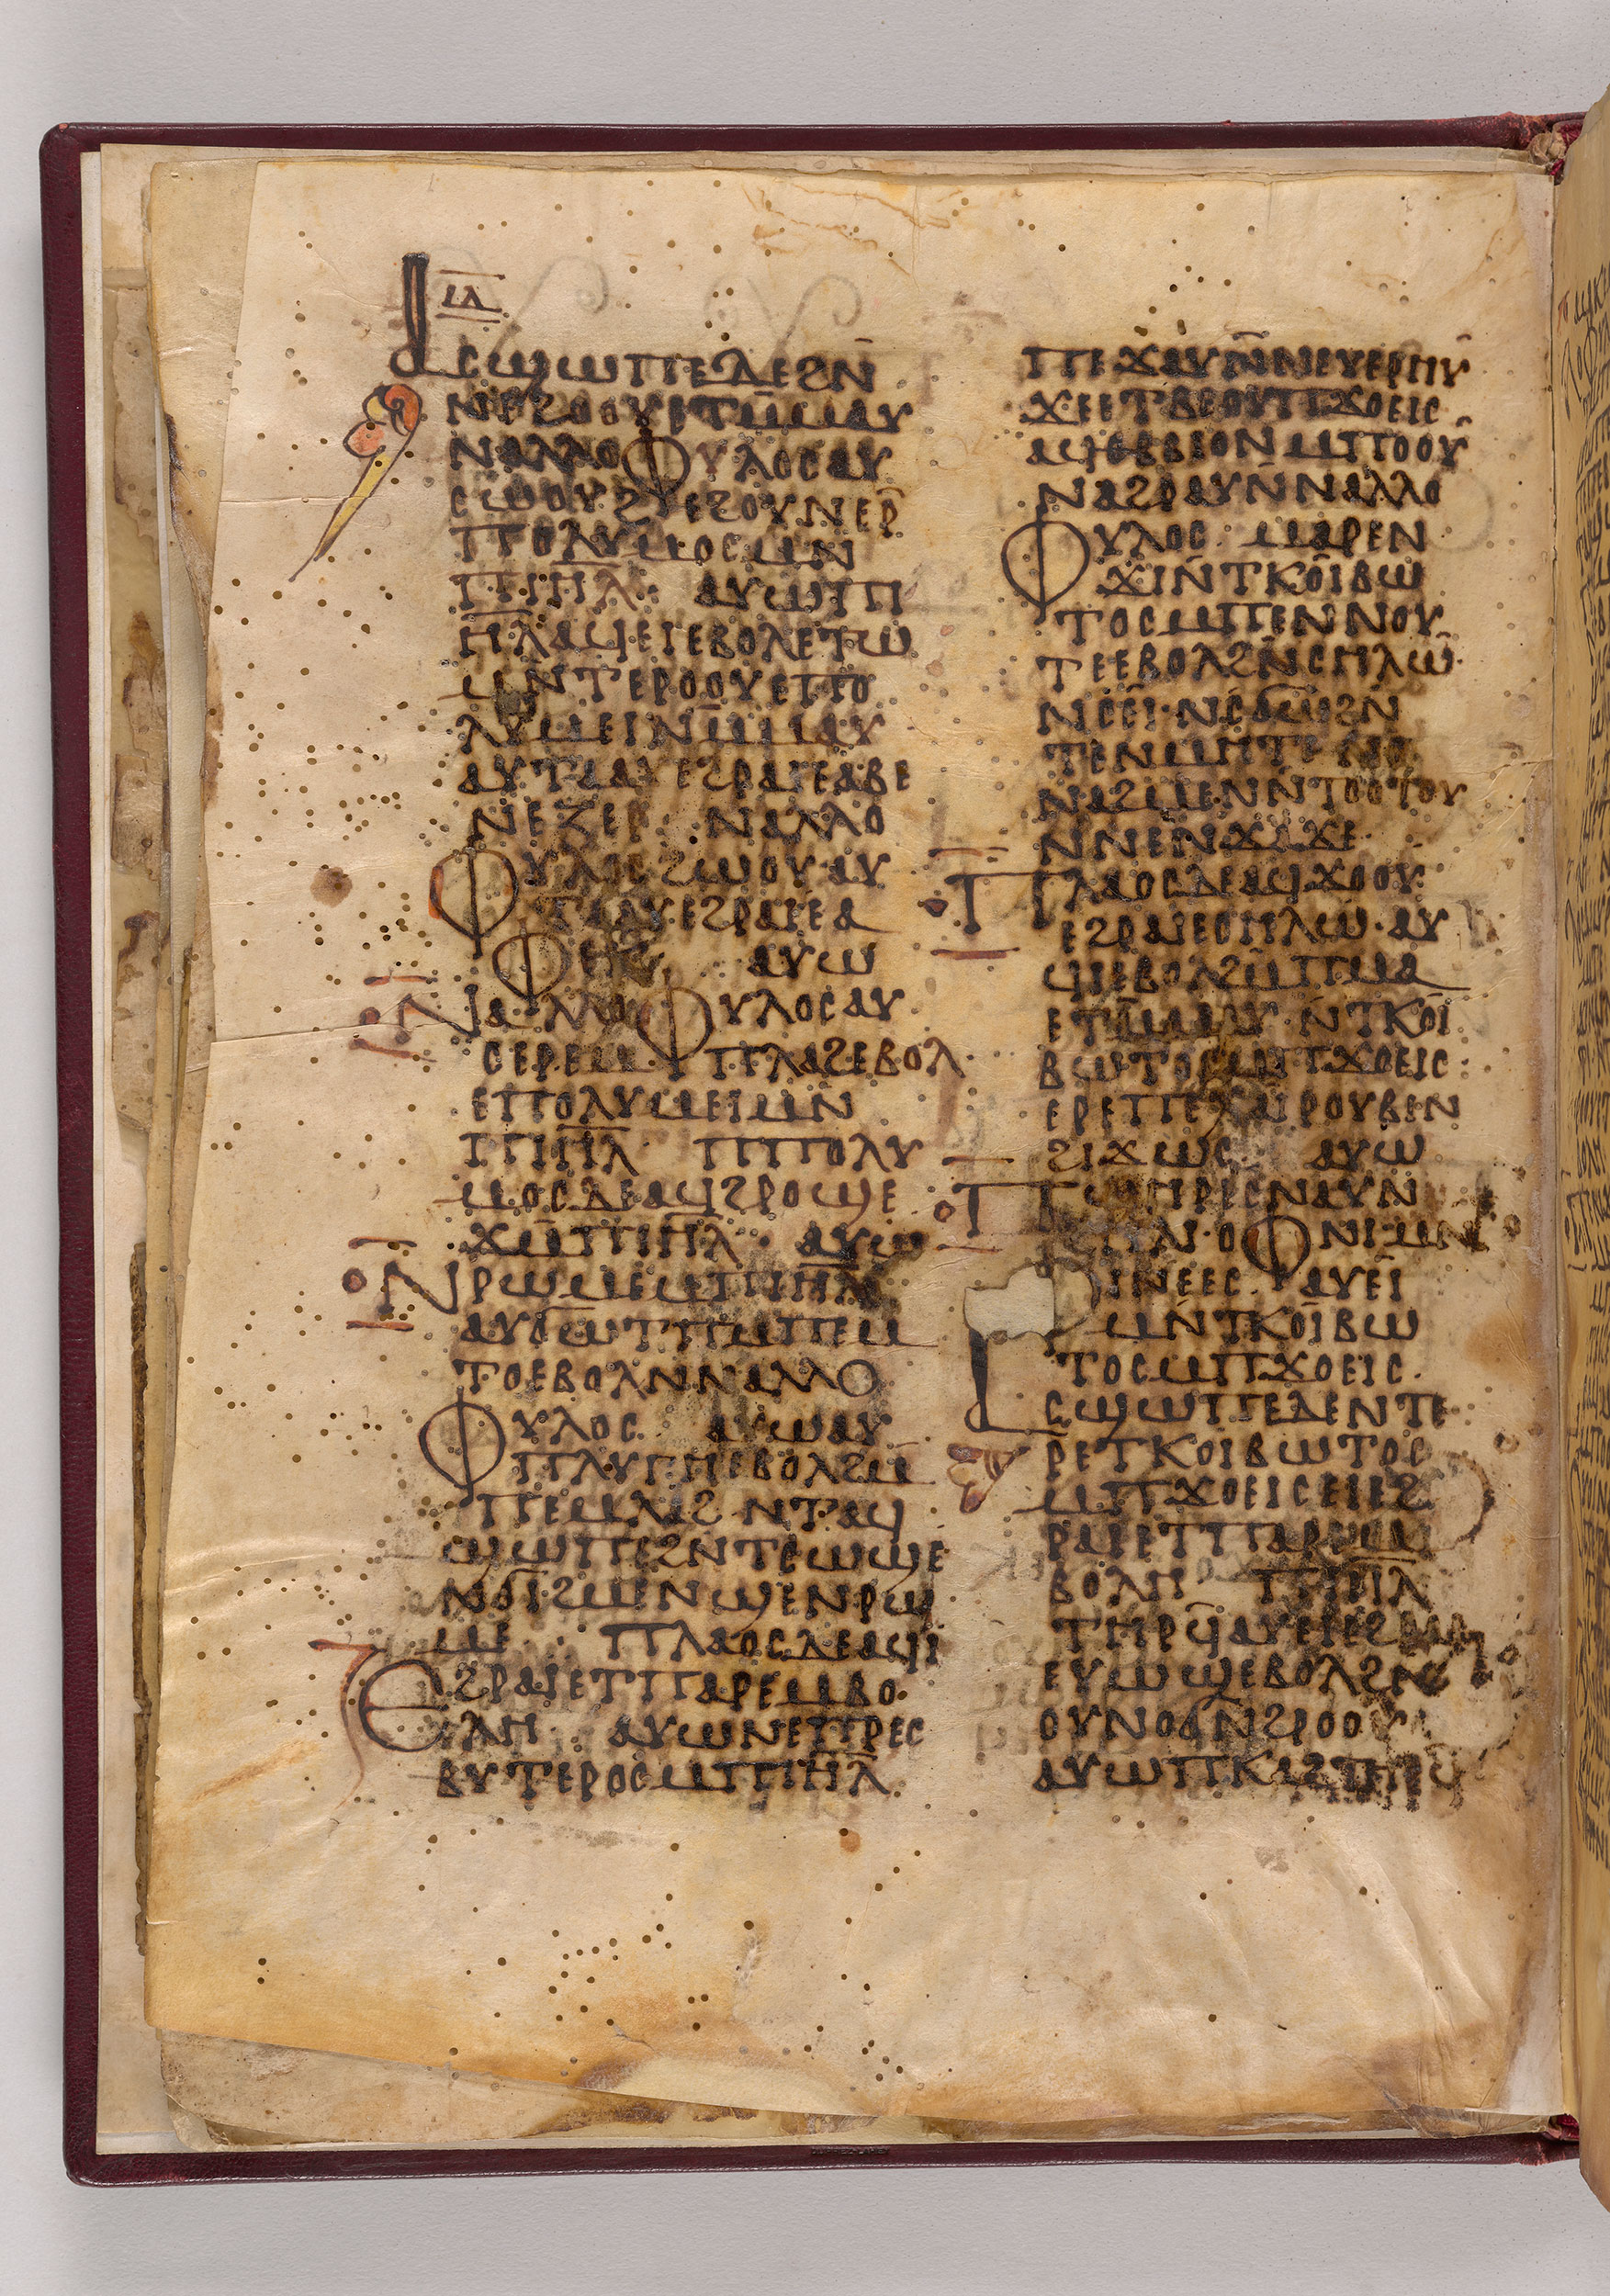 ⲓⲁ
ⲁⲥϣⲱⲡⲉⲇⲉϩⲛ̄
ⲛⲉϩⲟⲟⲩⲉⲧⲙ̄ⲙⲁⲩ
ⲛⲁⲗⲗⲟⲫⲩⲗⲟⲥⲁⲩ
ⲥⲱⲟⲩϩⲉϩⲟⲩⲛⲉⲣ̄
ⲡⲟⲗⲩⲙⲟⲥⲙⲛ
ⲡⲓⲏ̄ⲗ̄· ⲁⲩⲱⲡⲓ
ⲏ̄ⲗ̄ⲁϥⲉⲓⲉⲃⲟⲗⲉⲧⲱ
ⲙⲛ̄ⲧⲉⲣⲟⲟⲩⲉⲡⲟ
ⲗⲩⲙⲉⲓⲛⲙ̄ⲙⲁⲩ
ⲁⲩⲧⲁⲁⲩⲉϩⲣⲁⲓⲉⲁⲃⲉ
ⲛⲉⲍⲉⲣ ⲛⲁⲗⲗⲟ
ⲫⲩⲗⲟⲥϩⲱⲟⲩ·ⲁⲩ
ⲧⲁⲁⲩⲉϩⲣⲁⲓⲉⲁ
ⲫⲉⲕ ⲁⲩⲱ
ⲛⲁⲗⲗⲟⲫⲩⲗⲟⲥⲁⲩ
ⲥⲉⲣⲉⲙ ⲡⲗⲁϩⲉⲃⲟⲗ
ⲉⲡⲟⲗⲩⲙⲉⲓⲙⲛ̄
ⲡⲓⲏ̄ⲗ̄ ⲡⲡⲟⲗⲩ
ⲙⲟⲥⲇⲉⲁϥϩⲣⲟϣⲉ
ϫⲙ̄ⲡⲓⲏ̄ⲗ̄· ⲁⲩⲱ
ⲛⲣⲱⲙⲉⲙⲡⲓⲏ̄ⲗ̄
ⲁⲩϭⲱⲧⲡⲙ̄ⲡⲉⲙ
ⲧⲟⲉⲃⲟⲗⲛⲛⲁⲗⲗⲟ
ⲫⲩⲗⲟⲥ ⲁⲩⲱⲁⲩ
ⲡⲗⲩⲅⲏⲉⲃⲟⲗϩⲙ̄
ⲡⲉⲙⲗⲁϩ ⲛⲧⲁϥ
ϣⲱⲡⲉϩⲛⲧⲥⲱϣⲉ
ⲛϭⲓ·ϩⲙⲉⲛϣⲉⲛⲣⲱ
ⲙⲉ ⲡⲗⲁⲟⲥⲇⲉⲁϥⲓ
ⲉϩⲣⲁⲓⲉⲧⲡⲁⲣⲉⲙⲃⲟ
ⲗⲏ ⲁⲩⲱⲛⲉⲡⲣⲉⲥ
ⲃⲩⲧⲉⲣⲟⲥⲙⲡⲓⲏ̄ⲗ̄
ⲡⲉϫⲁⲩⲛ̄ⲛⲉⲩⲉⲣⲏⲩ̄
ϫⲉⲉⲧⲃⲉⲟⲩⲡϫⲟⲉⲓⲥ
ⲁϥⲑⲃⲃⲓⲟⲛⲙⲡⲟⲟⲩ̄
ⲛⲁϩⲣⲁⲩⲛ̄ⲛⲁⲗⲗⲟ
ⲫⲩⲗⲟⲥ· ⲙⲁⲣⲉⲛ
ϫⲓⲛ̄ⲧⲕⲟ̄ⲓⲃⲱ
ⲧⲟⲥⲙⲡⲉⲛⲛⲟⲩ
ⲧⲉⲉⲃⲟⲗϩⲛ̄ⲥⲏⲗⲱ·
ⲛ̄ⲥⲉ̄ⲓ·ⲛⲥϭⲱϩⲛ̄
ⲧⲉⲛⲙⲏⲧⲉ ⲛϥ
ⲛⲁϩⲙⲉⲛⲛⲧⲟⲟⲧⲟⲩ
ⲛⲛⲉⲛϫⲁϫⲉ
ⲡⲗⲁⲟⲥⲇⲉⲁϥϫⲟⲟⲩ
ⲉϩⲣⲁⲓⲉⲥⲏⲗⲱ·ⲁⲩ
ϥⲓⲉⲃⲟⲗϩⲙ̄ⲡⲙⲁ
ⲉⲧⲙ̄ⲙⲁⲩ ⲛ̄ⲧⲕⲟ̄ⲓ
ⲃⲱⲧⲟⲥⲙⲡϫⲟⲉⲓⲥ:
ⲉⲣⲉⲡⲉⲭⲁⲓⲣⲟⲩⲃⲓⲛ
ϩⲓϫⲱⲥ ⲁⲩⲱ
ⲡϣⲏⲣⲉⲥⲛⲁⲩⲛ̄
ϩⲏⲗⲓ·ⲟⲫⲛⲓ·ⲙⲛ̄
ⲫⲓⲛⲉⲉⲥ ⲁⲩⲉ̄ⲓ
ⲙⲛ̄ⲧⲕⲟ̄ⲓⲃⲱ
ⲧⲟⲥⲙⲡϫⲟⲉⲓⲥ·
ⲁⲥϣⲱⲡⲉⲇⲉⲛⲧⲉ
ⲣⲉⲧⲕⲟ̄ⲓⲃⲱⲧⲟⲥ
ⲙⲡϫⲟⲉⲓⲥⲉⲓⲉϩ
ⲣⲁⲓⲉⲧⲡⲁⲣⲉⲙ
ⲃⲟⲗⲏ ⲡⲓⲏ̄ⲗ̄
ⲧⲏⲣϥ̄ⲁⲩⲉⲓⲉϩ
ⲉⲩⲱϣⲉⲃⲟⲗϩⲛ
ⲟⲩⲛⲟϭⲛ̄ϩⲣⲟⲟⲩ
ⲁⲩⲱⲡⲕⲁϩⲧⲏⲣϥ